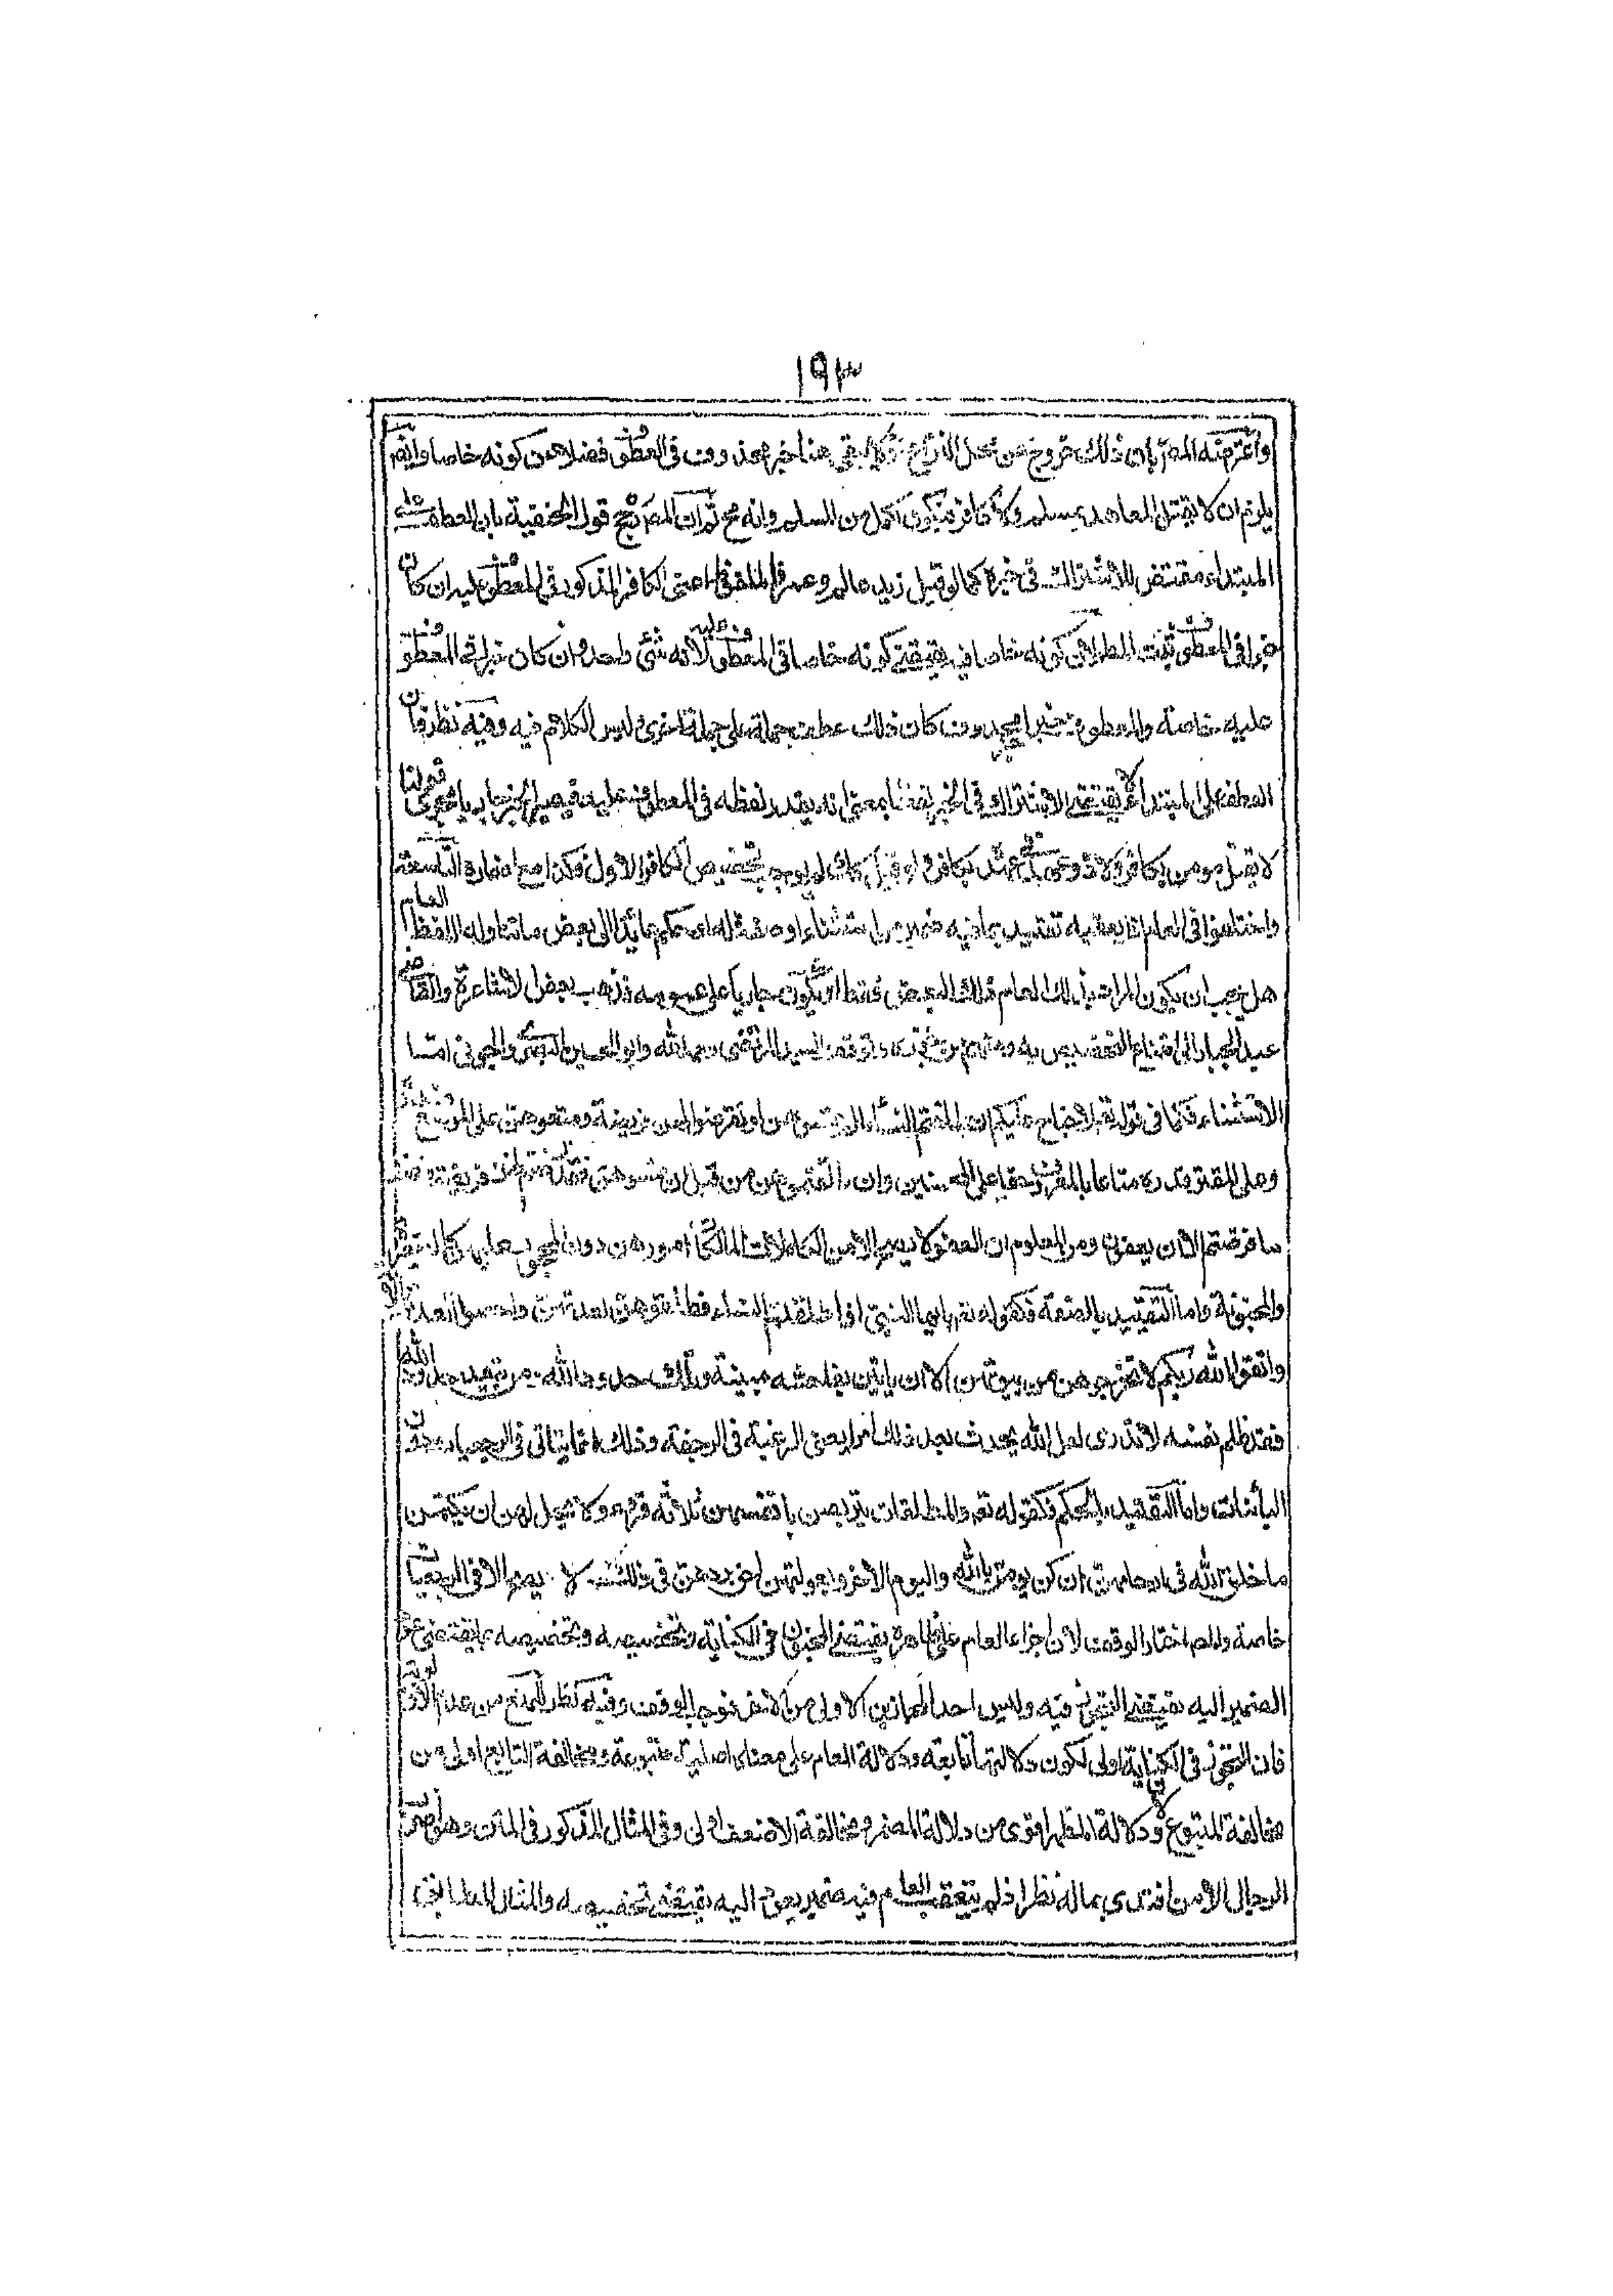 ١٩٣
واعترضه المصر بان ذلك خروج عن محل النزاع فلا يبقى هنا خبر محذوف فى المعطوف فضلا عن كونه خاصا وايضر
يلزم ان لا يقتل المعاهد بمسلم ولا كافر فيكون اكمل من المسلم وانه مح ثم ان المصر رجح قول الحنفية بان العطف على
المبتداء مقتض للاشتراك فى خبره كما لو قيل زيد عالم وعمرو اعنى الكافر المذكور فى المعطوف عليه ان كان
خبرا فى المعطوف ثبت المط لان كونه خاصا فيه يقتضى كونه خاصا فى المعطوف عليه لانه شئ واحد وان كان خبرا فى المعطوف
عليه خاصة والمعطوف خبرا محذوف كان ذلك عطف جملة على جملة اخرى وليس الكلام فيه وفيه نظر فان
العطف على المبتدا لا يقتضى الاشتراك فى الخبر بمعنى انه يقدر لفظه فى المعطوف عليه فيصير الخبر جاريا مجرى قولنا
لا يقتل مومن بكافر ولا ذو عهد فى عهده بكافر ولو قيل كك لم يوجب تخصيص الكافر الاول فكذا مع اضماره التاسعة
واختلفوا فى العام تعقيبه تقييد بما فيه ضمير من استثناء او صفة او حكم عائدا الى بعض ما تناوله اللفظ العام
هل يجب ان يكون المراد بذلك العام ذلك البعض فقط او يكون جاريا على عمومه فذهب بعض الاشاعرة والقاضى
عبد الجبار الى امتناع التخصيص به ومنهم من جوزه وتوقف السيد المرتضى رحمه الله وابو الحسين البصرى والجوينى اما
الاستثناء فكما فى قوله تعر لا جناح عليكم ان طلقتم النساء ما لم تمسوهن او تفرضوا لهن فريضة ومتعوهن على الموسع قدره
وعلى المقتر قدره متاعا بالمعروف حقا على المحسنين وان طلقتموهن من قبل ان تمسوهن وقد فرضتم لهن فريضة فنصف
ما فرضتم الا ان يعفون ومن المعلوم ان العفو لا يصح الا من الكاملات المالكات امورهن دون المحجوب عليهن كالصغيرة
والمجنونة واما التقييد بالصفة فكقوله تعر يا ايها النبى اذا طلقتم النساء فطلقوهن لعدتهن واحصوا العدة
واتقوا الله ربكم لا تخرجوهن من بيوتهن الا ان ياتين بفاحشة مبينة وتلك حدود الله ومن يتعد حدود الله
فقد ظلم نفسه لا تدرى لعل الله يحدث بعد ذلك امرا يعنى الرغبة فى الرجعة وذلك انما يتاتى فى الرجعيات دون
البائنات واما التقييد بالحكم فكقوله تعر والمطلقات يتربصن بانفسهن ثلاثة قروء ولا يحل لهن ان يكتمن
ما خلق الله فى ارحامهن ان كن يومن بالله واليوم الاخر وبعولتهن احق بردهن فى ذلك لا يصح الا فى الرجعيات
خاصة والمصر اختار الوقف لان اجراء العام على ظاهره يقتضى التجوز فى الكناية وتخصيصه وتخصيصه بما يقتضى عود
الضمير اليه يقتضى التجوز فيه وليس احد المجازين اولى من الاخر فوجب الوقف وفيه نظر للمنع من عدم الاولوية
فان التجوز فى الكناية اولى لكون دلالتها تابعة ودلالة العام على معناه اصلية متبوعة ومخالفة التابع اولى من
مخالفة المتبوع ولان دلالة المظهر اقوى من دلالة المضمر ومخالفة الاضعف اولى وفى المثال المذكور فى المتن وهو اضرب
الرجال الا من افتدى بماله نظر اذ لم يتعقب العام فيه ضمير يعود اليه يقتضى تخصيصه والمثال المطابق